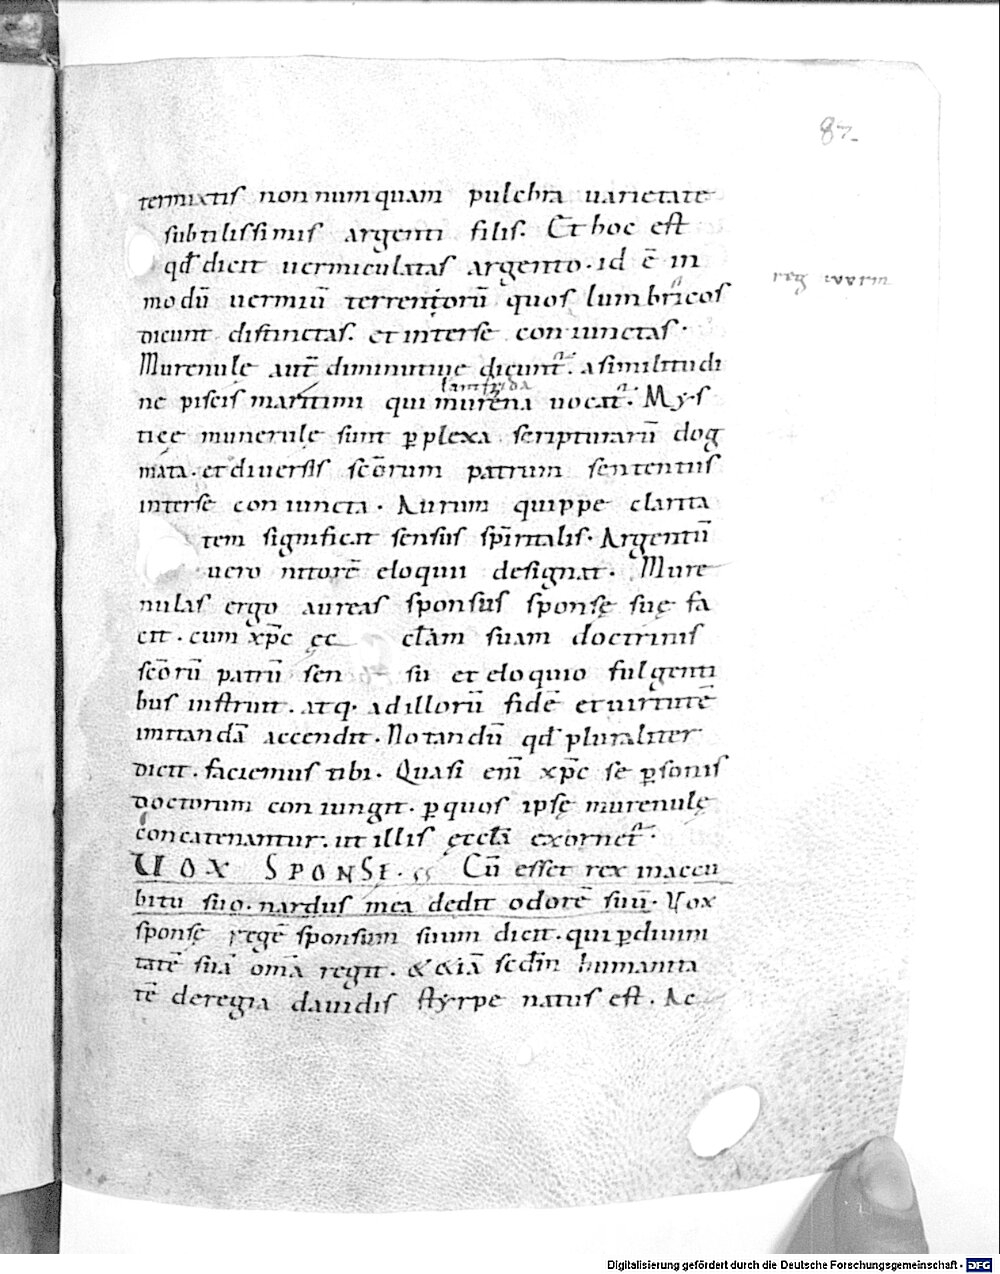 87
termixtis non numquam pulchra uarietate
subtilissimis argenti filis. Et hoc est
qđ dicit uermiculatas argento. id ē in
modū uermiū terrenorū quos lumbricos
dicunt distinctas. et interse coniunctas.
reg wurm
Murenulę aut̄ diminutiue dicunt᷑. a similitudi
lamfrida
ne piscis maritimi qui murena uocat᷑. Mys
ticę munerulę sunt ꝑplexa scripturarū dog
mata. et diuersis scōrum patrum sententiis
interse coniuncta. Aurum quippe clarita
tem significat sensus spīritalis. Argentū
uero nitorē eloquii designat. Mure
nulas ergo aureas sponsus sponsę suę fa
cit. cum xp̄c ęc clām suam doctrinis
scōrū patrū sen su et eloquio fulgenti
bus instruit. atq· ad illorū fidē et uirtutē
imitandā accendit. Notandū qđ pluraliter
dicit. faciemus tibi. Quasi eni̅ xp̄c se ꝑsonis
doctorum coniungit. ꝑ quos ipsę murenulę
concatenantur. ut illis ęcclā exornet᷑.
UOX SPONSE. Cū esset rex in accu
bitu suo. nardus mea dedit odorē suū. Vox
sponsę regē sponsum suum dicit. qui ꝑ diuini
tatē suā omā regit. & &iā scđm humanita
tē de regia dauidis styrpe natus est. Ac
Digitalisierung gefördert durch die Deutsche Forschungsgemeinschaft - DFG